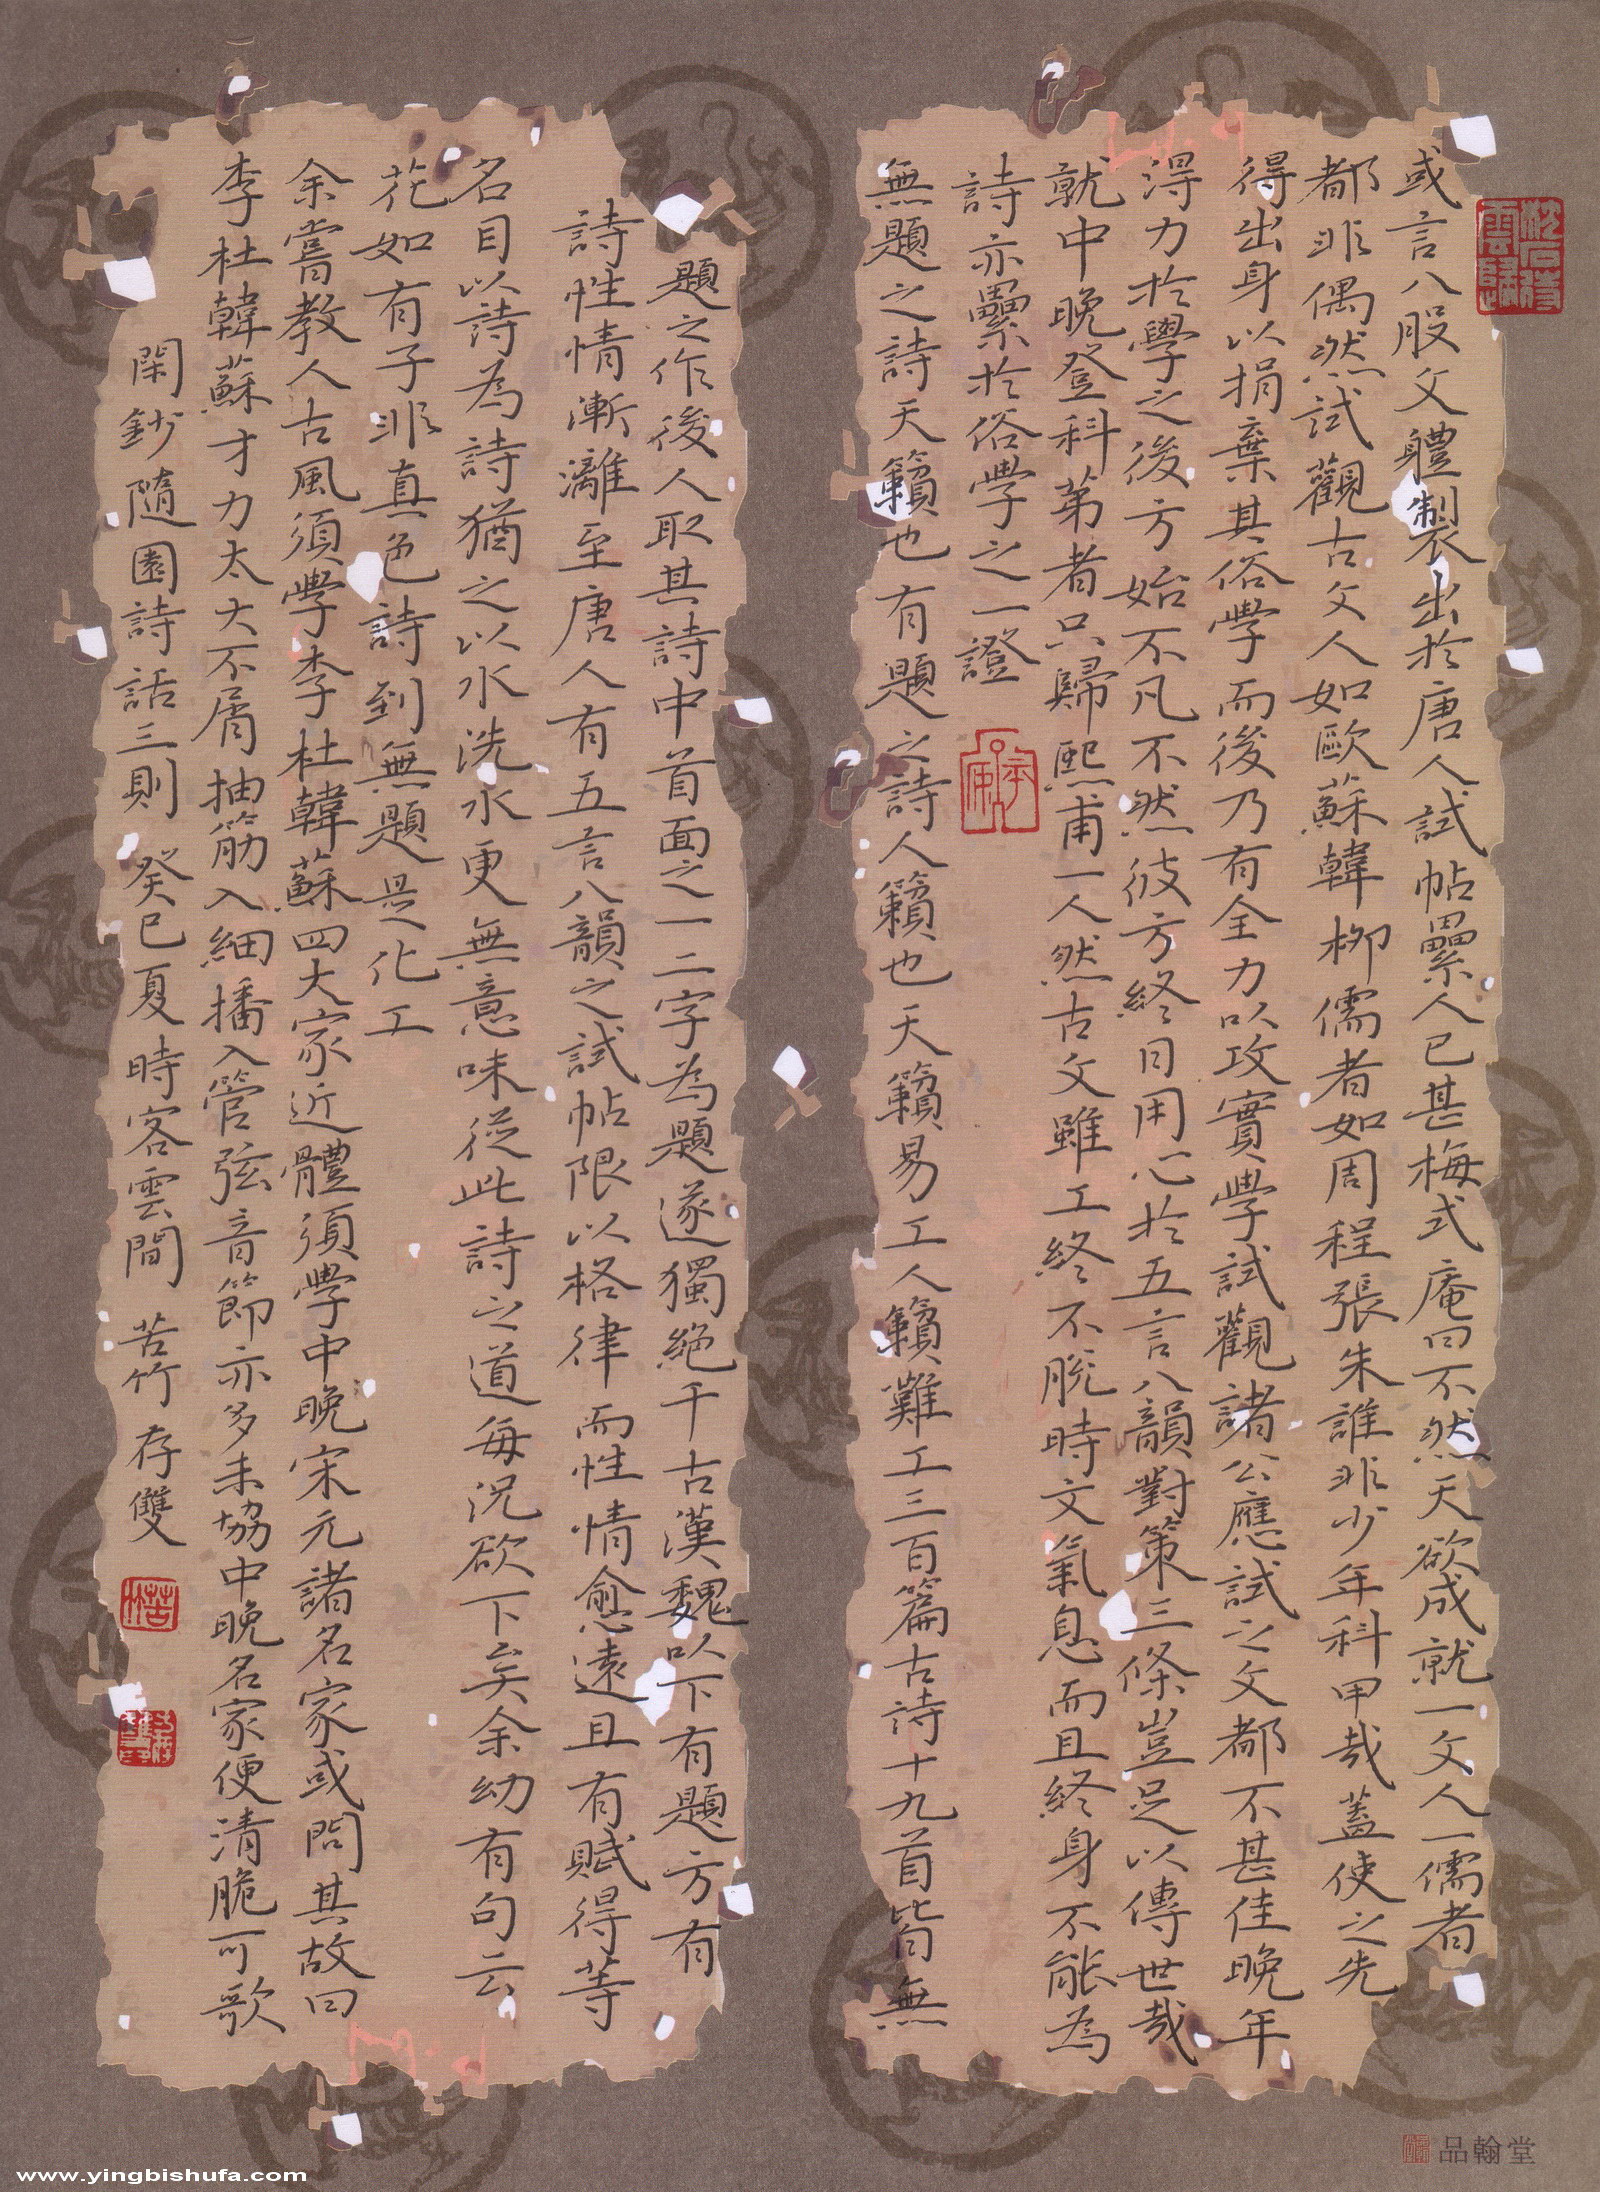 或言八股文體製出於唐人試帖累人已甚梅式庵曰不然天欲成就一文人一儒者
都非偶然試觀古文人如歐蘇韓柳儒者如周程張朱誰非少年科甲哉蓋使之先
得出身以捐棄其俗學而後乃有全力以攻實學試觀諸公應試之文都不甚佳晚年
得力於學之後方始不凡不然彼方終日用心於五言八韻對策三條豈足以傳世哉
就中晚登科第者只歸熙甫一人然古文雖工終不脫時文氣息而且終身不能為
詩亦累於俗學之一證
無題之詩天籟也有題之詩人籟也天籟易工人籟難工三百篇古詩十九首皆無
題之作後人取其詩中首面之一二字為題遂獨絕千古漢魏以下有題方有
詩性情漸漓至唐人有五言八韻之試帖限以格律而性情愈遠且有賦得等
名目以詩為詩猶之以水洗水更無意味從此詩之道每況欲下矣余幼有句云
花如有子非真色詩到無題是化工
余嘗教人古風須學李杜韓蘇四大家近體須學中晚宋元諸名家或問其故曰
李杜韓蘇才力太大不屑抽筋入細播入管弦音節亦多未協中晚名家便清脆可歌
閑鈔隨園詩話三則 癸巳夏時客雲間 苦竹 存雙
品翰堂
www.yingbishufa.com